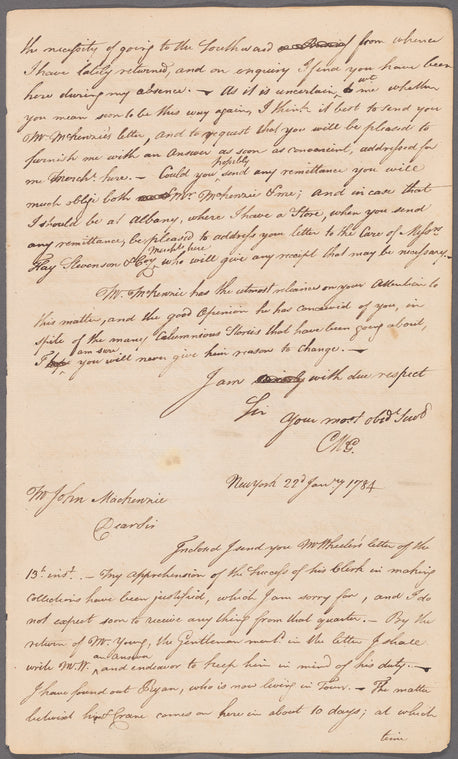 the necessity of going to the Southward from whence
I have lately returned, and on enquiry I find you have been
here during my absence. — As it is uncertain wt. me whether
you mean soon to be this way again, I think it best to send you
Mr. McKenzie's letter, and to request that you will be pleased to
furnish me with an Answer as soon as convenient, addressed for
me Mercht. here. — Could you possibly send any remittance you will
much oblige both Mr. McKenzie & me; And in case that
I should be at Albany, where I have a Store, when you send
any remittance, be pleased to address your letter to the Care of Messrs.
Hay Stevenson & Coy. Merchts. here who will give any receipt that may be necessary. —
Mr. McKenzie has the utmost reliance on your Attention to
this matter, and the good Opinion he has conceived of you, in
spite of the many Calumnious Stories that have been going about,
I am sure you will never give him reason to change. —
I am with due respect
Sir
Your most obdt. Servt.
New York 22d. Janry. 1784
Mr. John Mackenzie
Dear Sir
Inclosed I send you Mr. Wheeler's letter of the
13th. inst. — My apprehension of the Success of his Clerk in making
Collections have been justified, which I am sorry for, and I do
not expect soon to receive any thing from that quarter. — By the
return of Mr. Young, the Gentleman mentd. in the letter I shall
write Mr. W. an answer, and endeavor to keep him in mind of his duty. —
I have found out Ryan, who is now living in Town. — The matter
betwixt him & Crane comes on here in about 10 days; at which
time